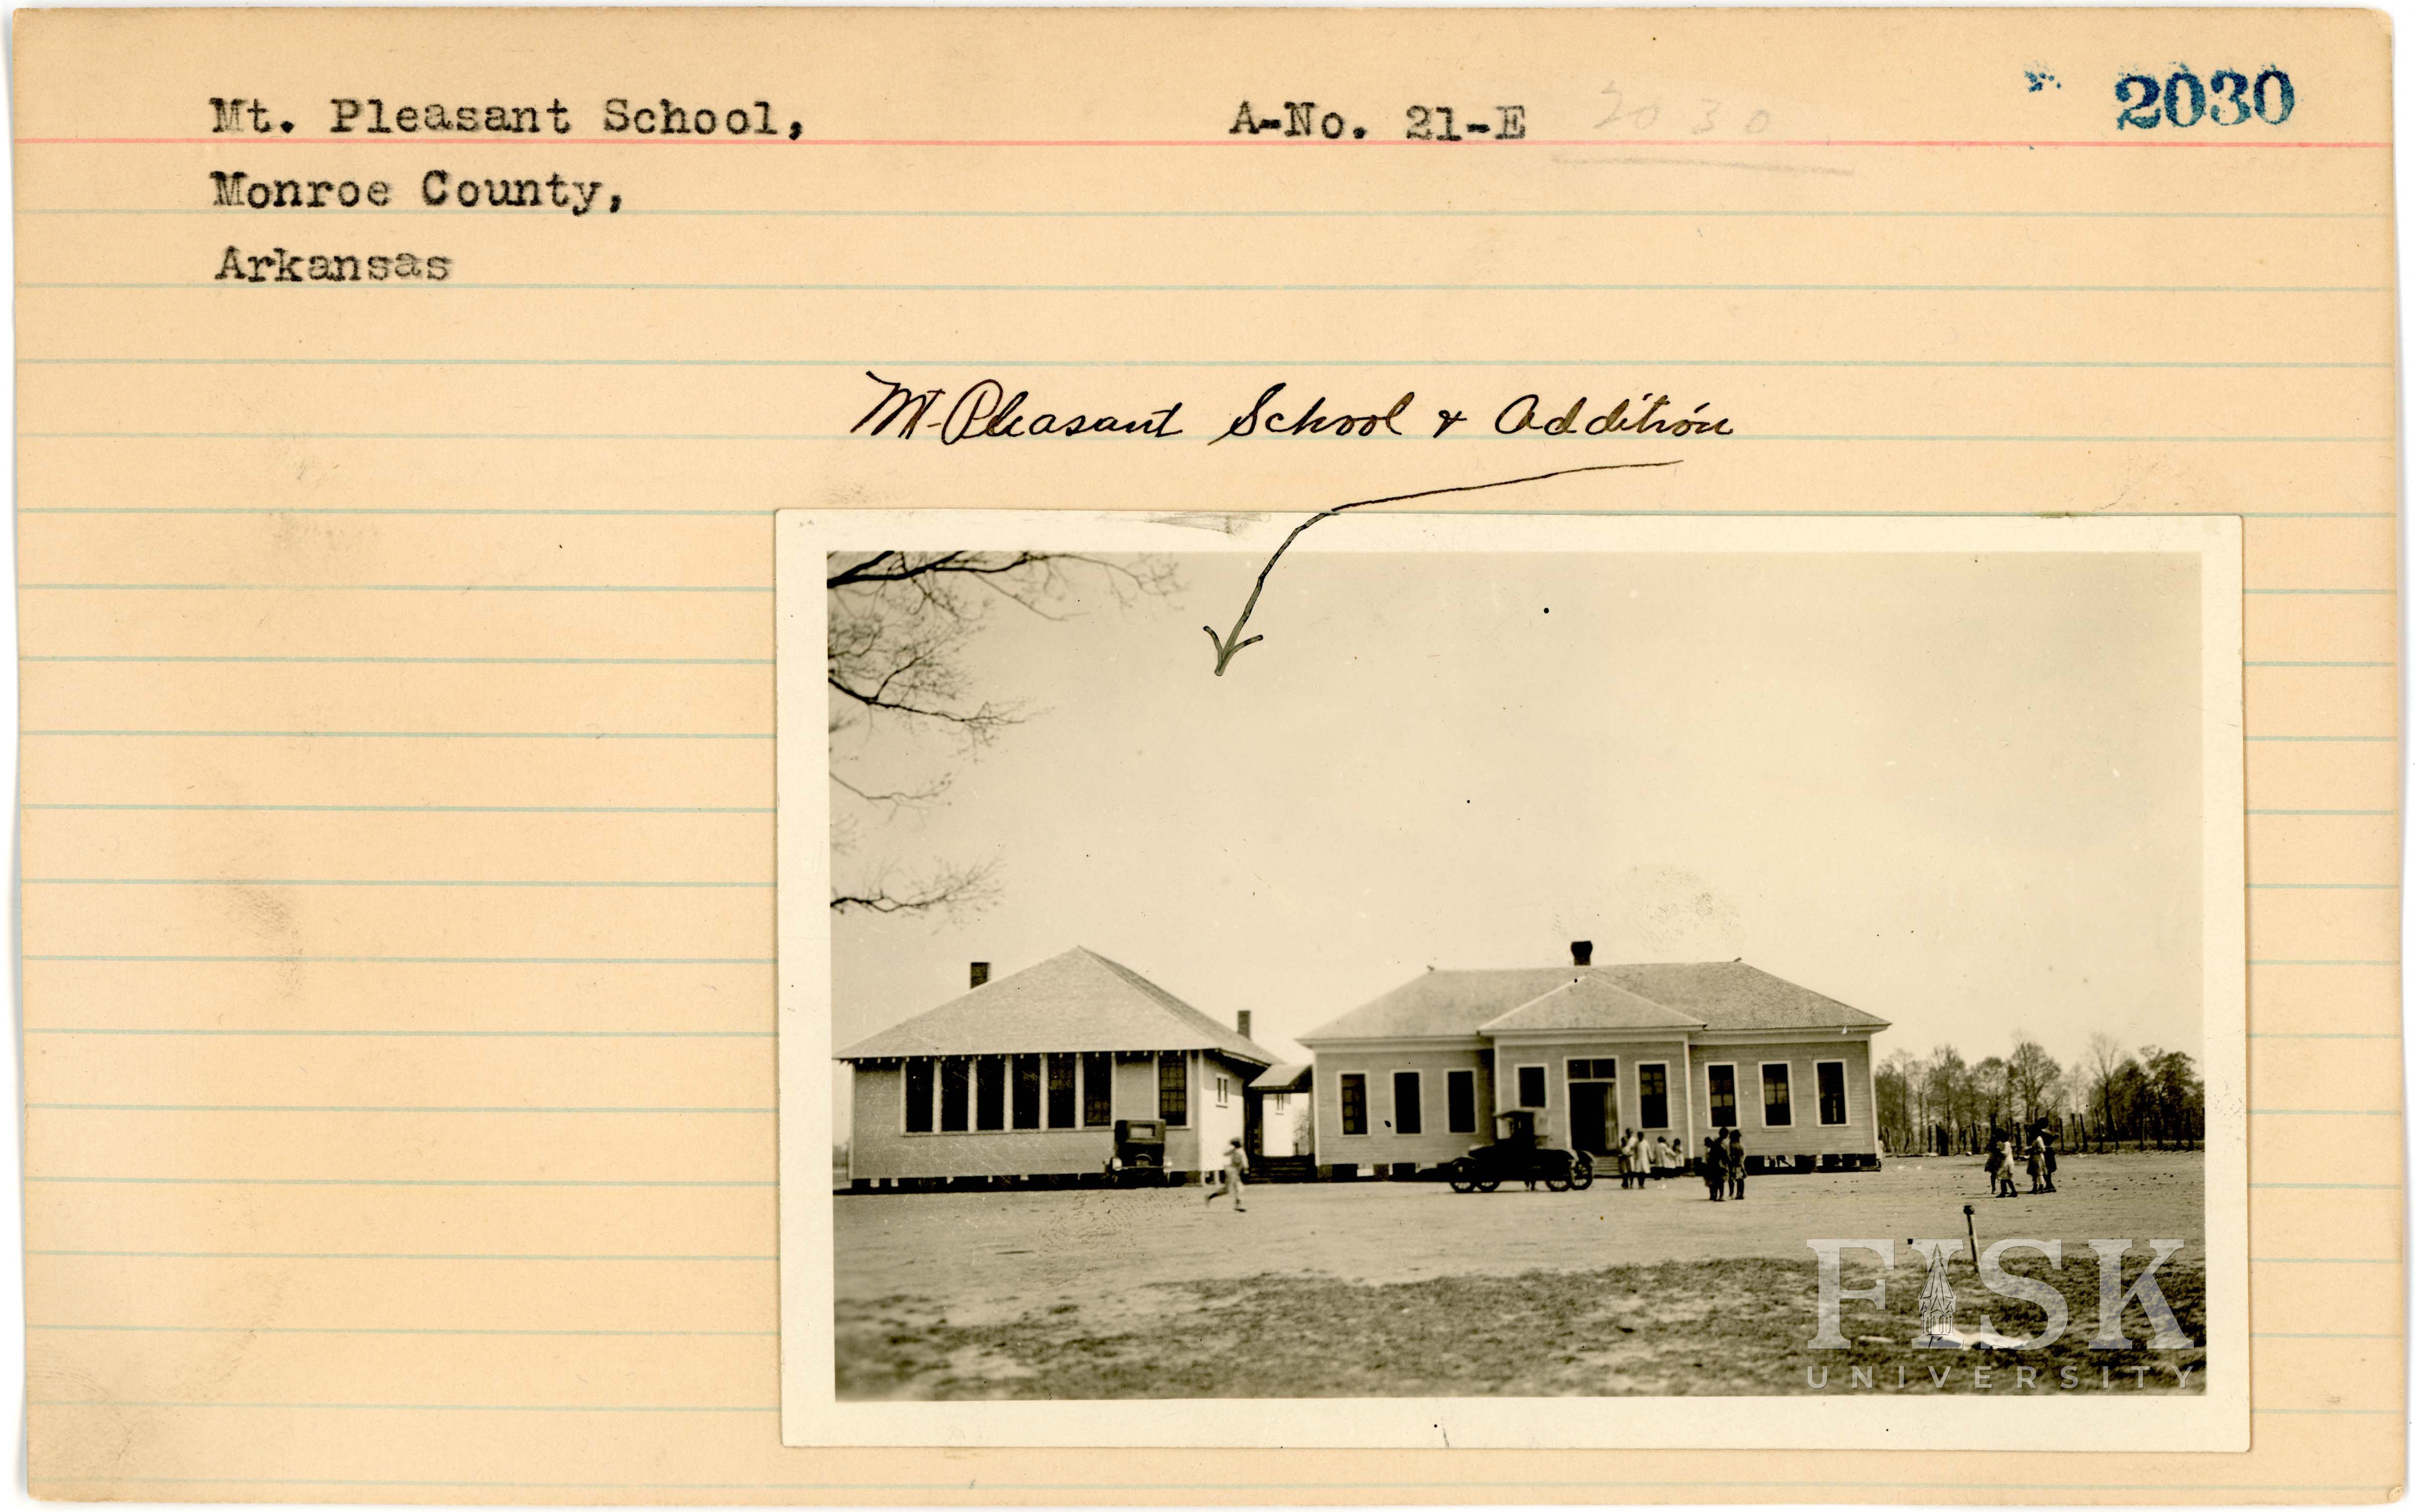 Mt. Pleasant School,
A-No. 21-E
2030
2030
Monroe County,
Arkansas
Mt. Pleasant School & Addition
FISK
UNIVERSITY